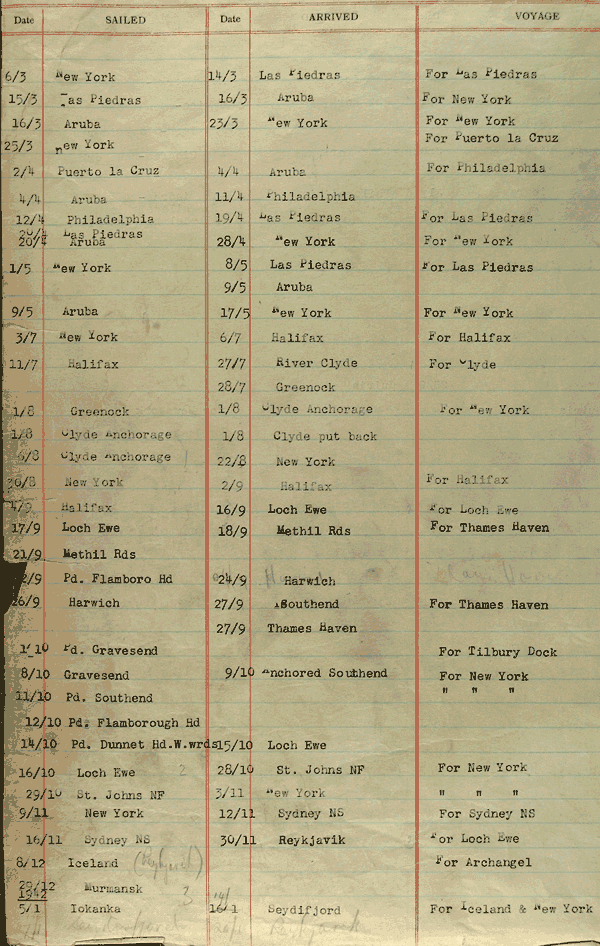 Date SAILED Date ARRIVED VOYAGE
6/3 New York 14/3 Las Piedras For Las Piedras
15/3 Las Piedras 16/3 Aruba For New York
16/3 Aruba 23/3 New York For New York
25/3 New York For Puerto la Cruz
2/4 Puerto la Cruz 4/4 Aruba For Philadelphia
4/4 Aruba 11/4 Philadelphia
12/4 Philadelphia 19/4 Las Piedras For Las Piedras
20/4 Las Piedras
20/4 Aruba 28/4 New York For New York
1/5 New York 8/5 Las Piedras For Las Piedras
9/5 Aruba
9/5 Aruba 17/5 New York For New York
3/7 New York 6/7 Halifax For Halifax
11/7 Halifax 27/7 River Clyde For Clyde
28/7 Greenock
1/8 Greenock 1/8 Clyde Anchorage For New York
1/8 Clyde Anchorage 1/8 Clyde put back
6/8 Clyde Anchorage 22/8 New York
30/8 New York 2/9 Halifax For Halifax
4/9 Halifax 16/9 Loch Ewe For Loch Ewe
17/9 Loch Ewe 18/9 Methil Rds For Thames Haven
21/9 Methil Rds
2/9 Pd. Flamboro Hd 24/9 Harwich
26/9 Harwich 27/9 Southend For Thames Haven
27/9 Thames Haven
1/10 Pd. Gravesend For Tilbury Dock
8/10 Gravesend 9/10 Anchored Southend For New York
11/10 Pd. Southend " " "
12/10 Pd. Flamborough Hd
14/10 Pd. Dunnet Hd.W.wrds 15/10 Loch Ewe
16/10 Loch Ewe 2 28/10 St. Johns NF For New York
29/10 St. Johns NF 3/11 New York " " "
9/11 New York 12/11 Sydney NS For Sydney NS
16/11 Sydney NS 30/11 Reykjavik For Loch Ewe
8/12 Iceland (Reykjavik) For Archangel
29/12 Murmansk 3
1942
5/1 Iokanka 16/1 Seydifjord For Iceland & New York